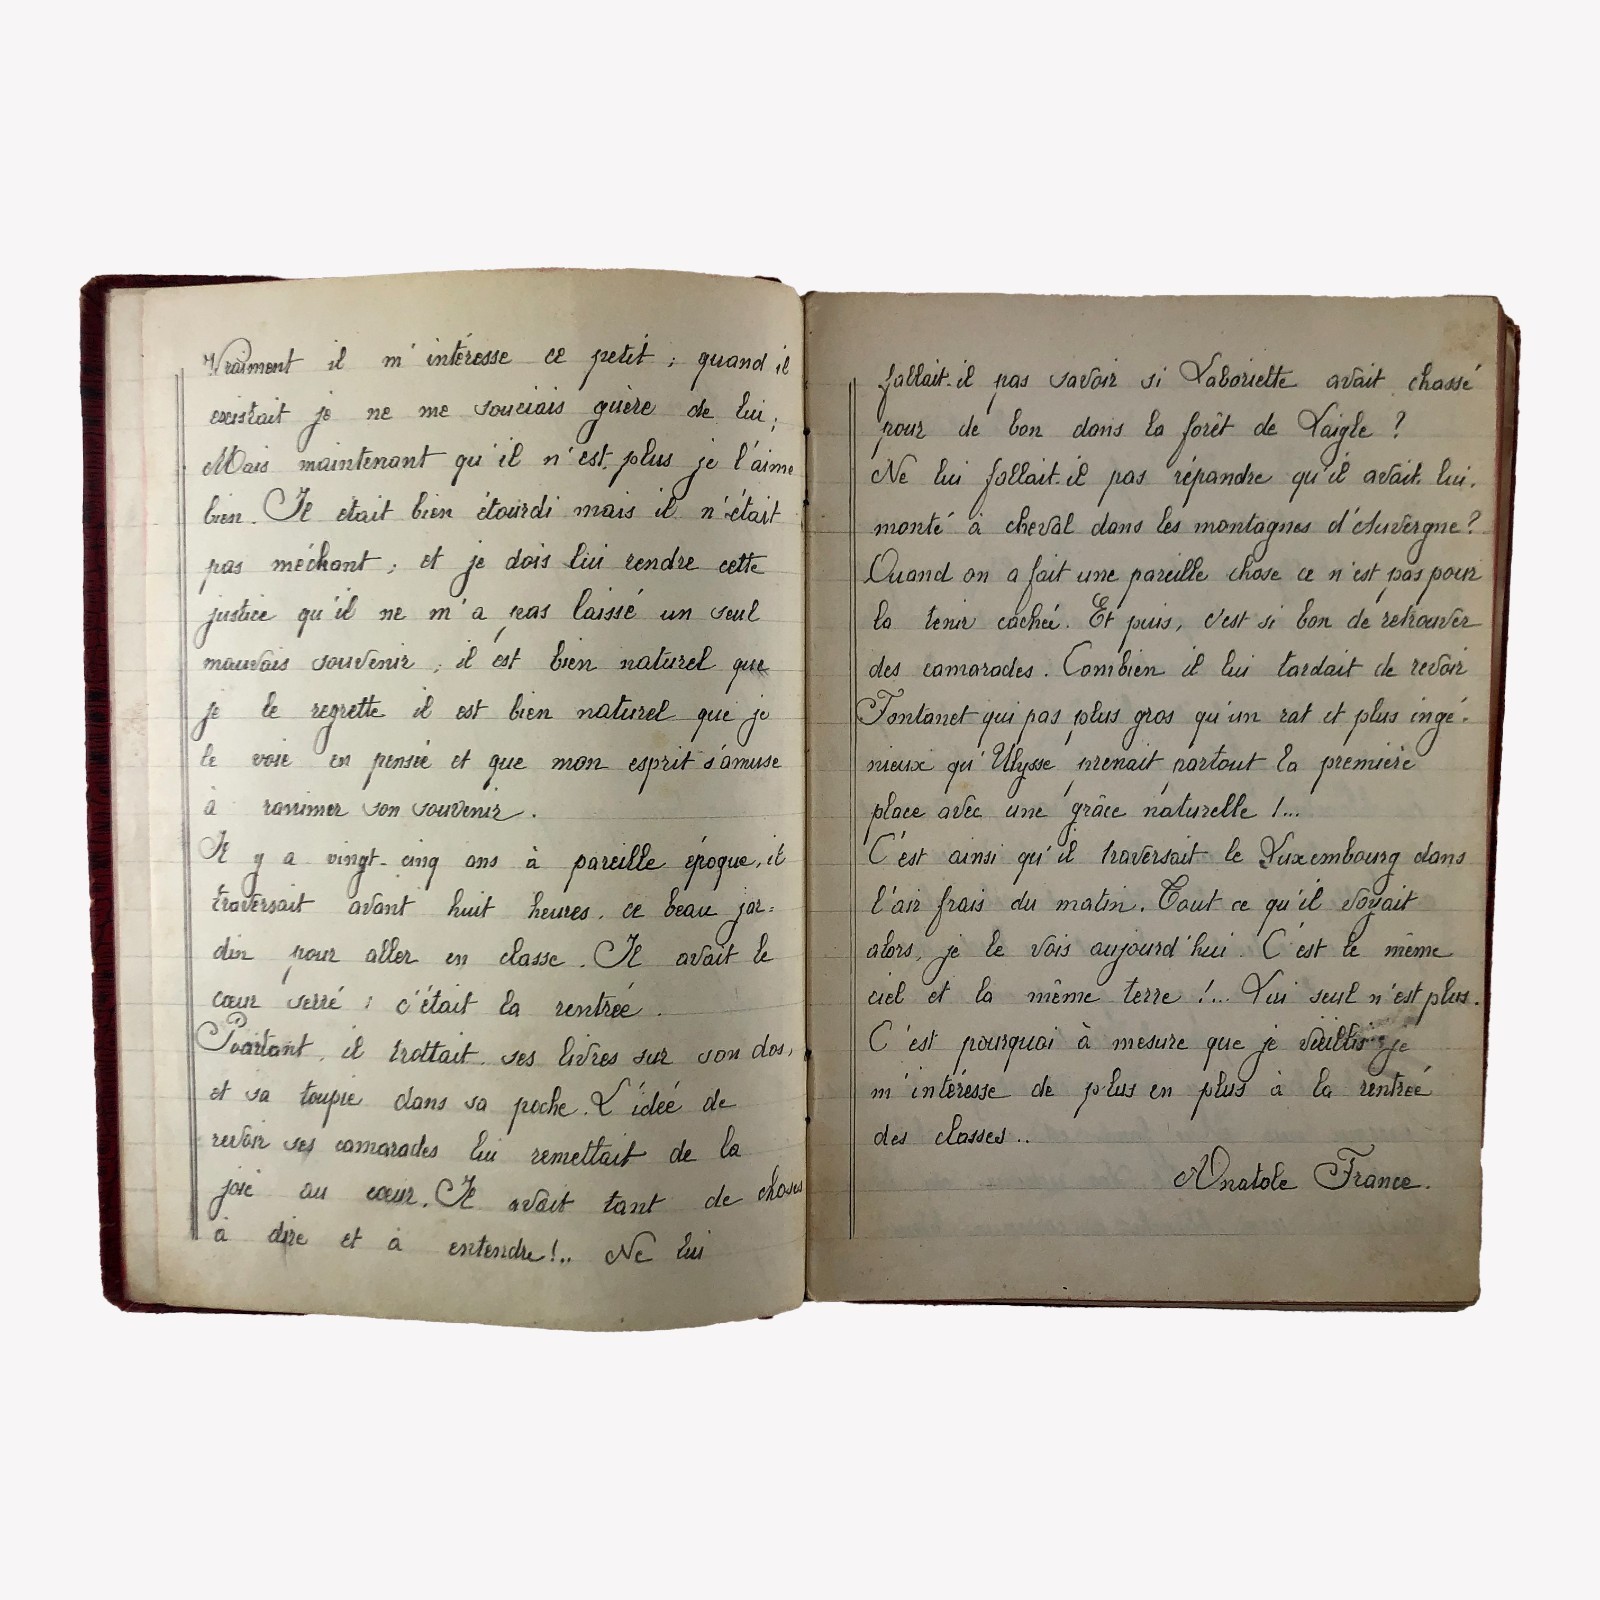 Vraiment il m'intéresse ce petit ; quand il
existait je ne me souciais guère de lui ;
Mais maintenant qu'il n'est plus je l'aime
bien. Il était bien étourdi mais il n'était
pas méchant ; et je dois lui rendre cette
justice qu'il ne m'a pas laissé un seul
mauvais souvenir ; il est bien naturel que
je le regrette il est bien naturel que je
le voie en pensée et que mon esprit s'amuse
à ranimer son souvenir.
Il y a vingt-cinq ans à pareille époque, il
traversait avant huit heures. ce beau jar=
din pour aller en classe. Il avait le
cœur serré : c'était la rentrée.
Pourtant, il trottait ses livres sur son dos,
et sa toupie dans sa poche. L'idée de
revoir ses camarades lui remettait de la
joie au cœur. Il avait tant de choses
à dire et à entendre !.. Ne lui
fallait-il pas savoir si Laboriette avait chassé
pour de bon dans la forêt de Laigle ?
Ne lui fallait-il pas répandre qu'il avait, lui,
monté à cheval dans les montagnes d'Auvergne ?
Quand on a fait une pareille chose ce n'est pas pour
la tenir cachée. Et puis, c'est si bon de retrouver
des camarades. Combien il lui tardait de revoir
Fontanet qui pas plus gros qu'un rat et plus ingé-
nieux qu'Ulysse prenait partout la première
place avec une grâce naturelle !...
C'est ainsi qu'il traversait le Luxembourg dans
l'air frais du matin. Tout ce qu'il voyait
alors, je le vois aujourd'hui. C'est le même
ciel et la même terre !... Lui seul n'est plus.
C'est pourquoi à mesure que je vieillis je
m'intéresse de plus en plus à la rentrée
des classes..
Anatole France.